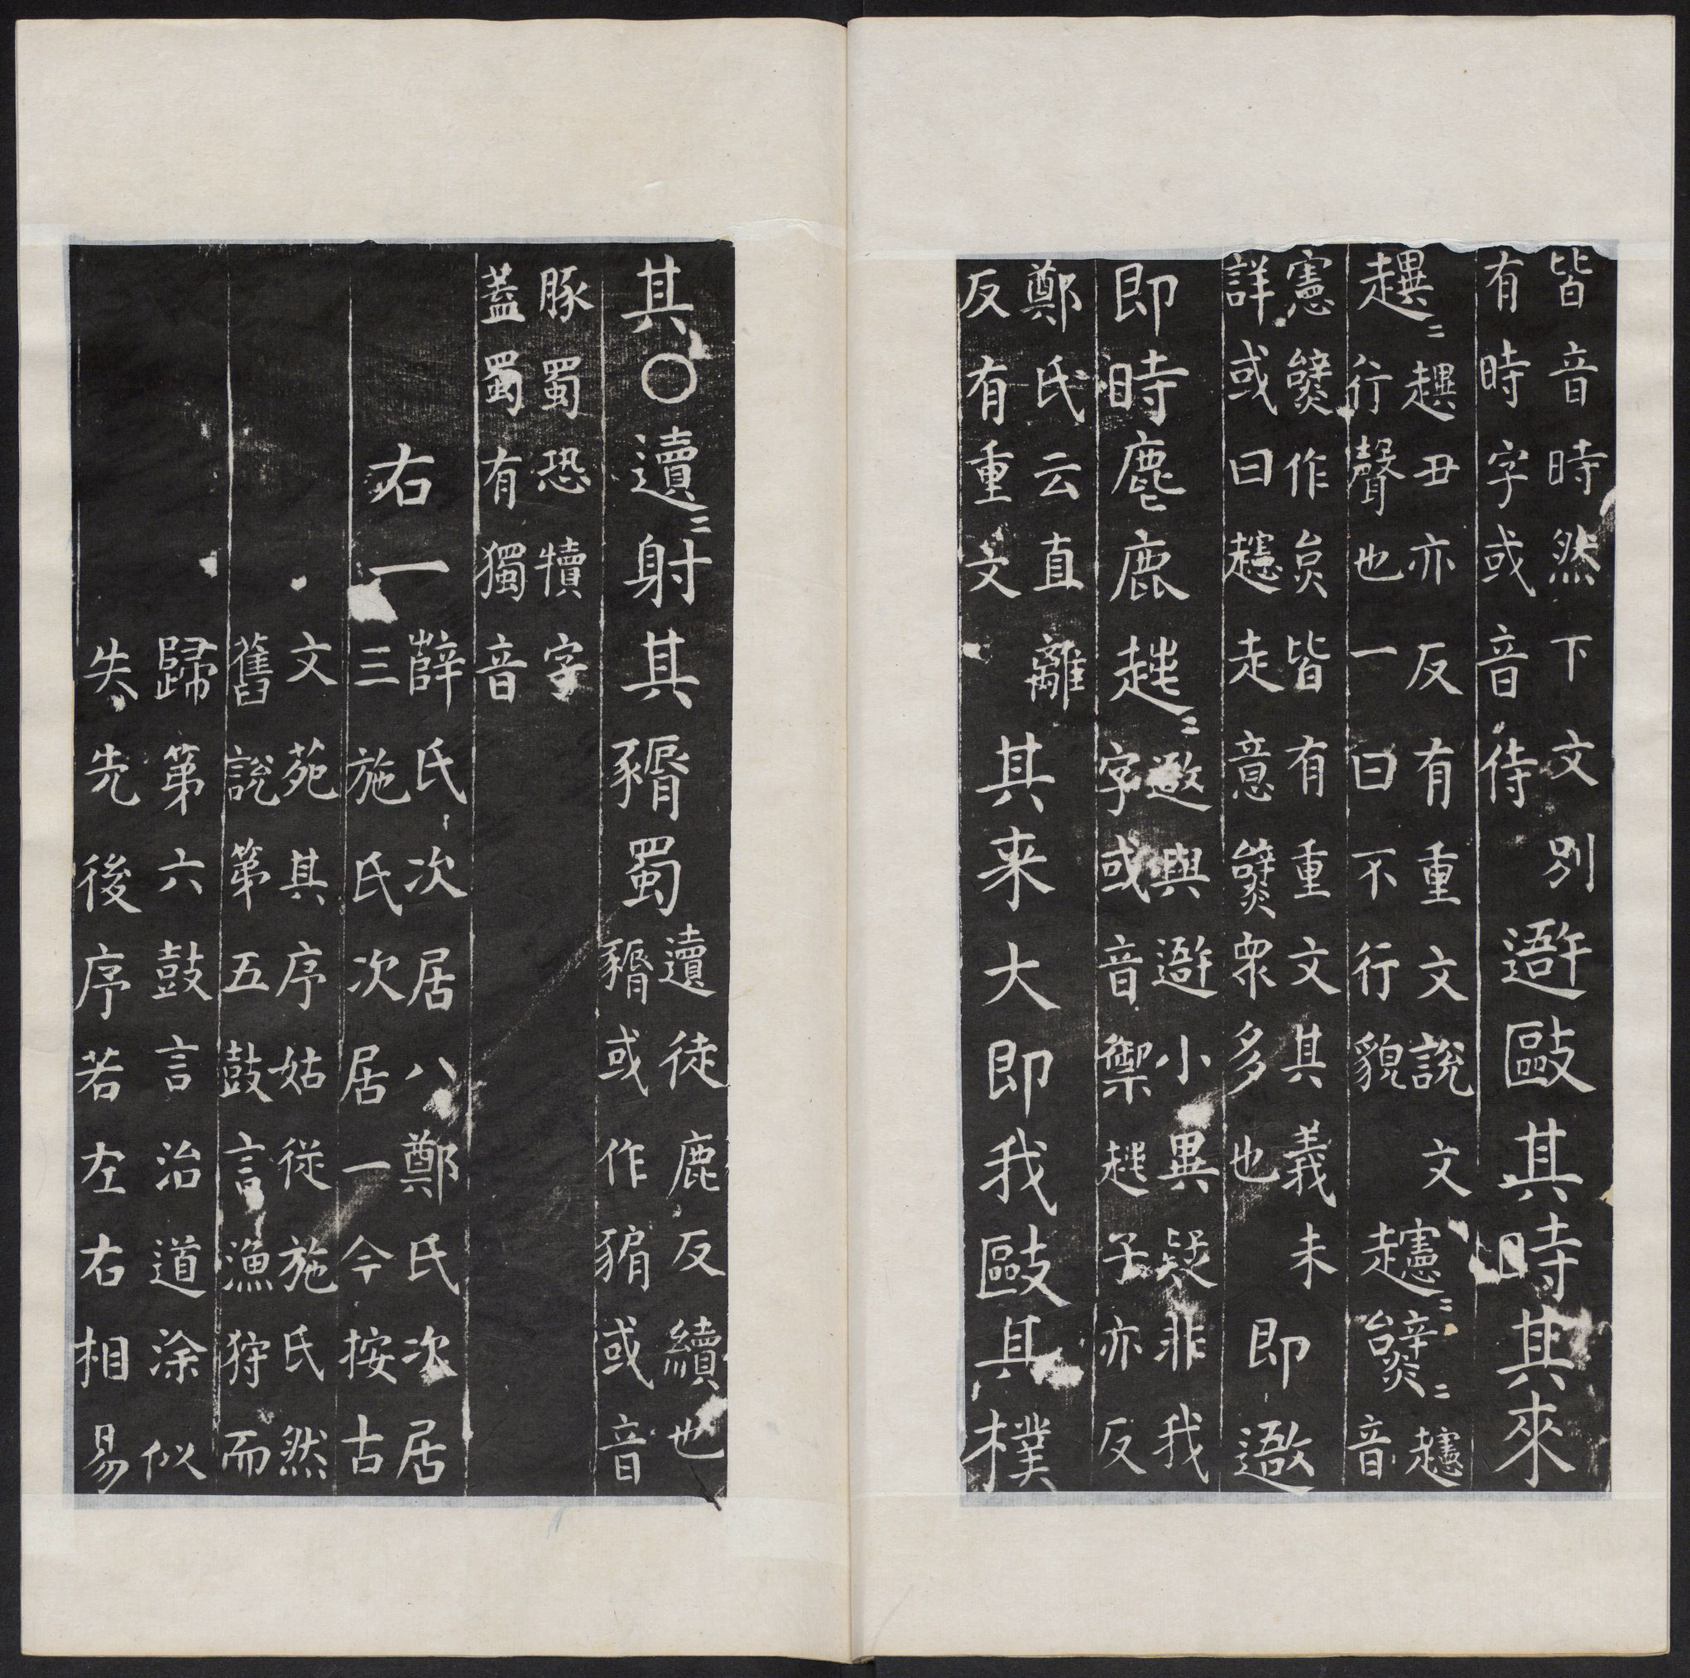 皆音時然下文別
有時字或音待
敺其時其來
趩〻
趩丑亦反有重文說文
行聲也一曰不行貌
音
憲作炱皆有重文其義未
詳或曰走意衆多也
即
即時麀鹿趚〻
與小異疑非我
字或音禦趚子亦反
鄭氏云直離
反有重文
其来大即我敺其樸
其○遺〻射其豣蜀
遺徒鹿反續也
或作豣或音
豚蜀恐犢字
蓋蜀有獨音
右一
薛氏次居八鄭氏次居
三施氏次居一今按古
文苑其序姑從施氏然
舊說第五鼓言漁狩而
歸第六鼓言治道涂似
失先後序若左右相易